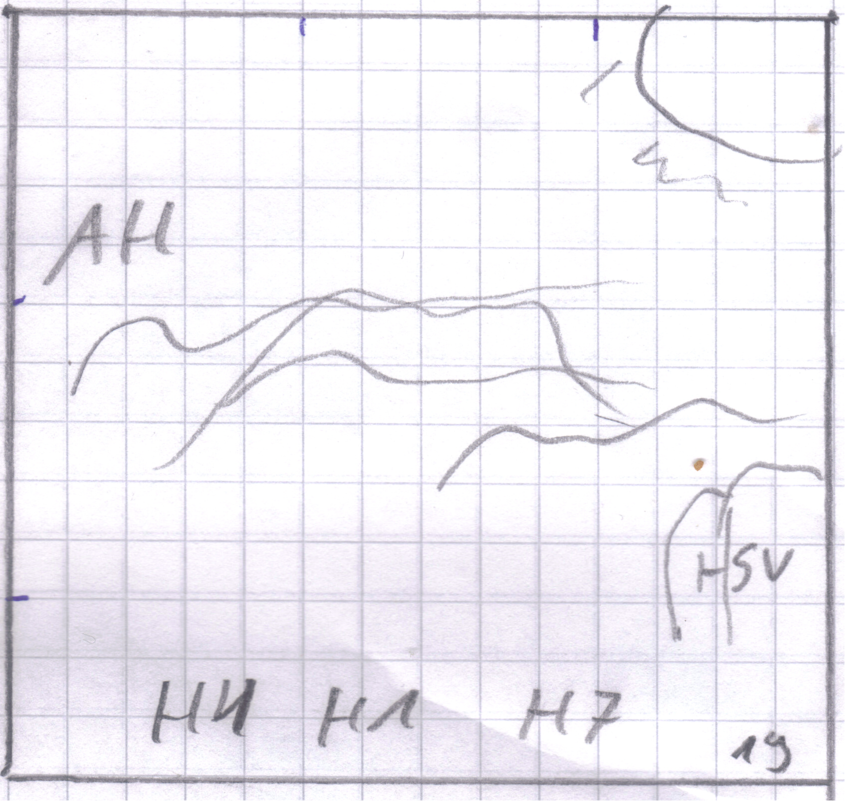 AH
HSV
H4 H1 H7
19